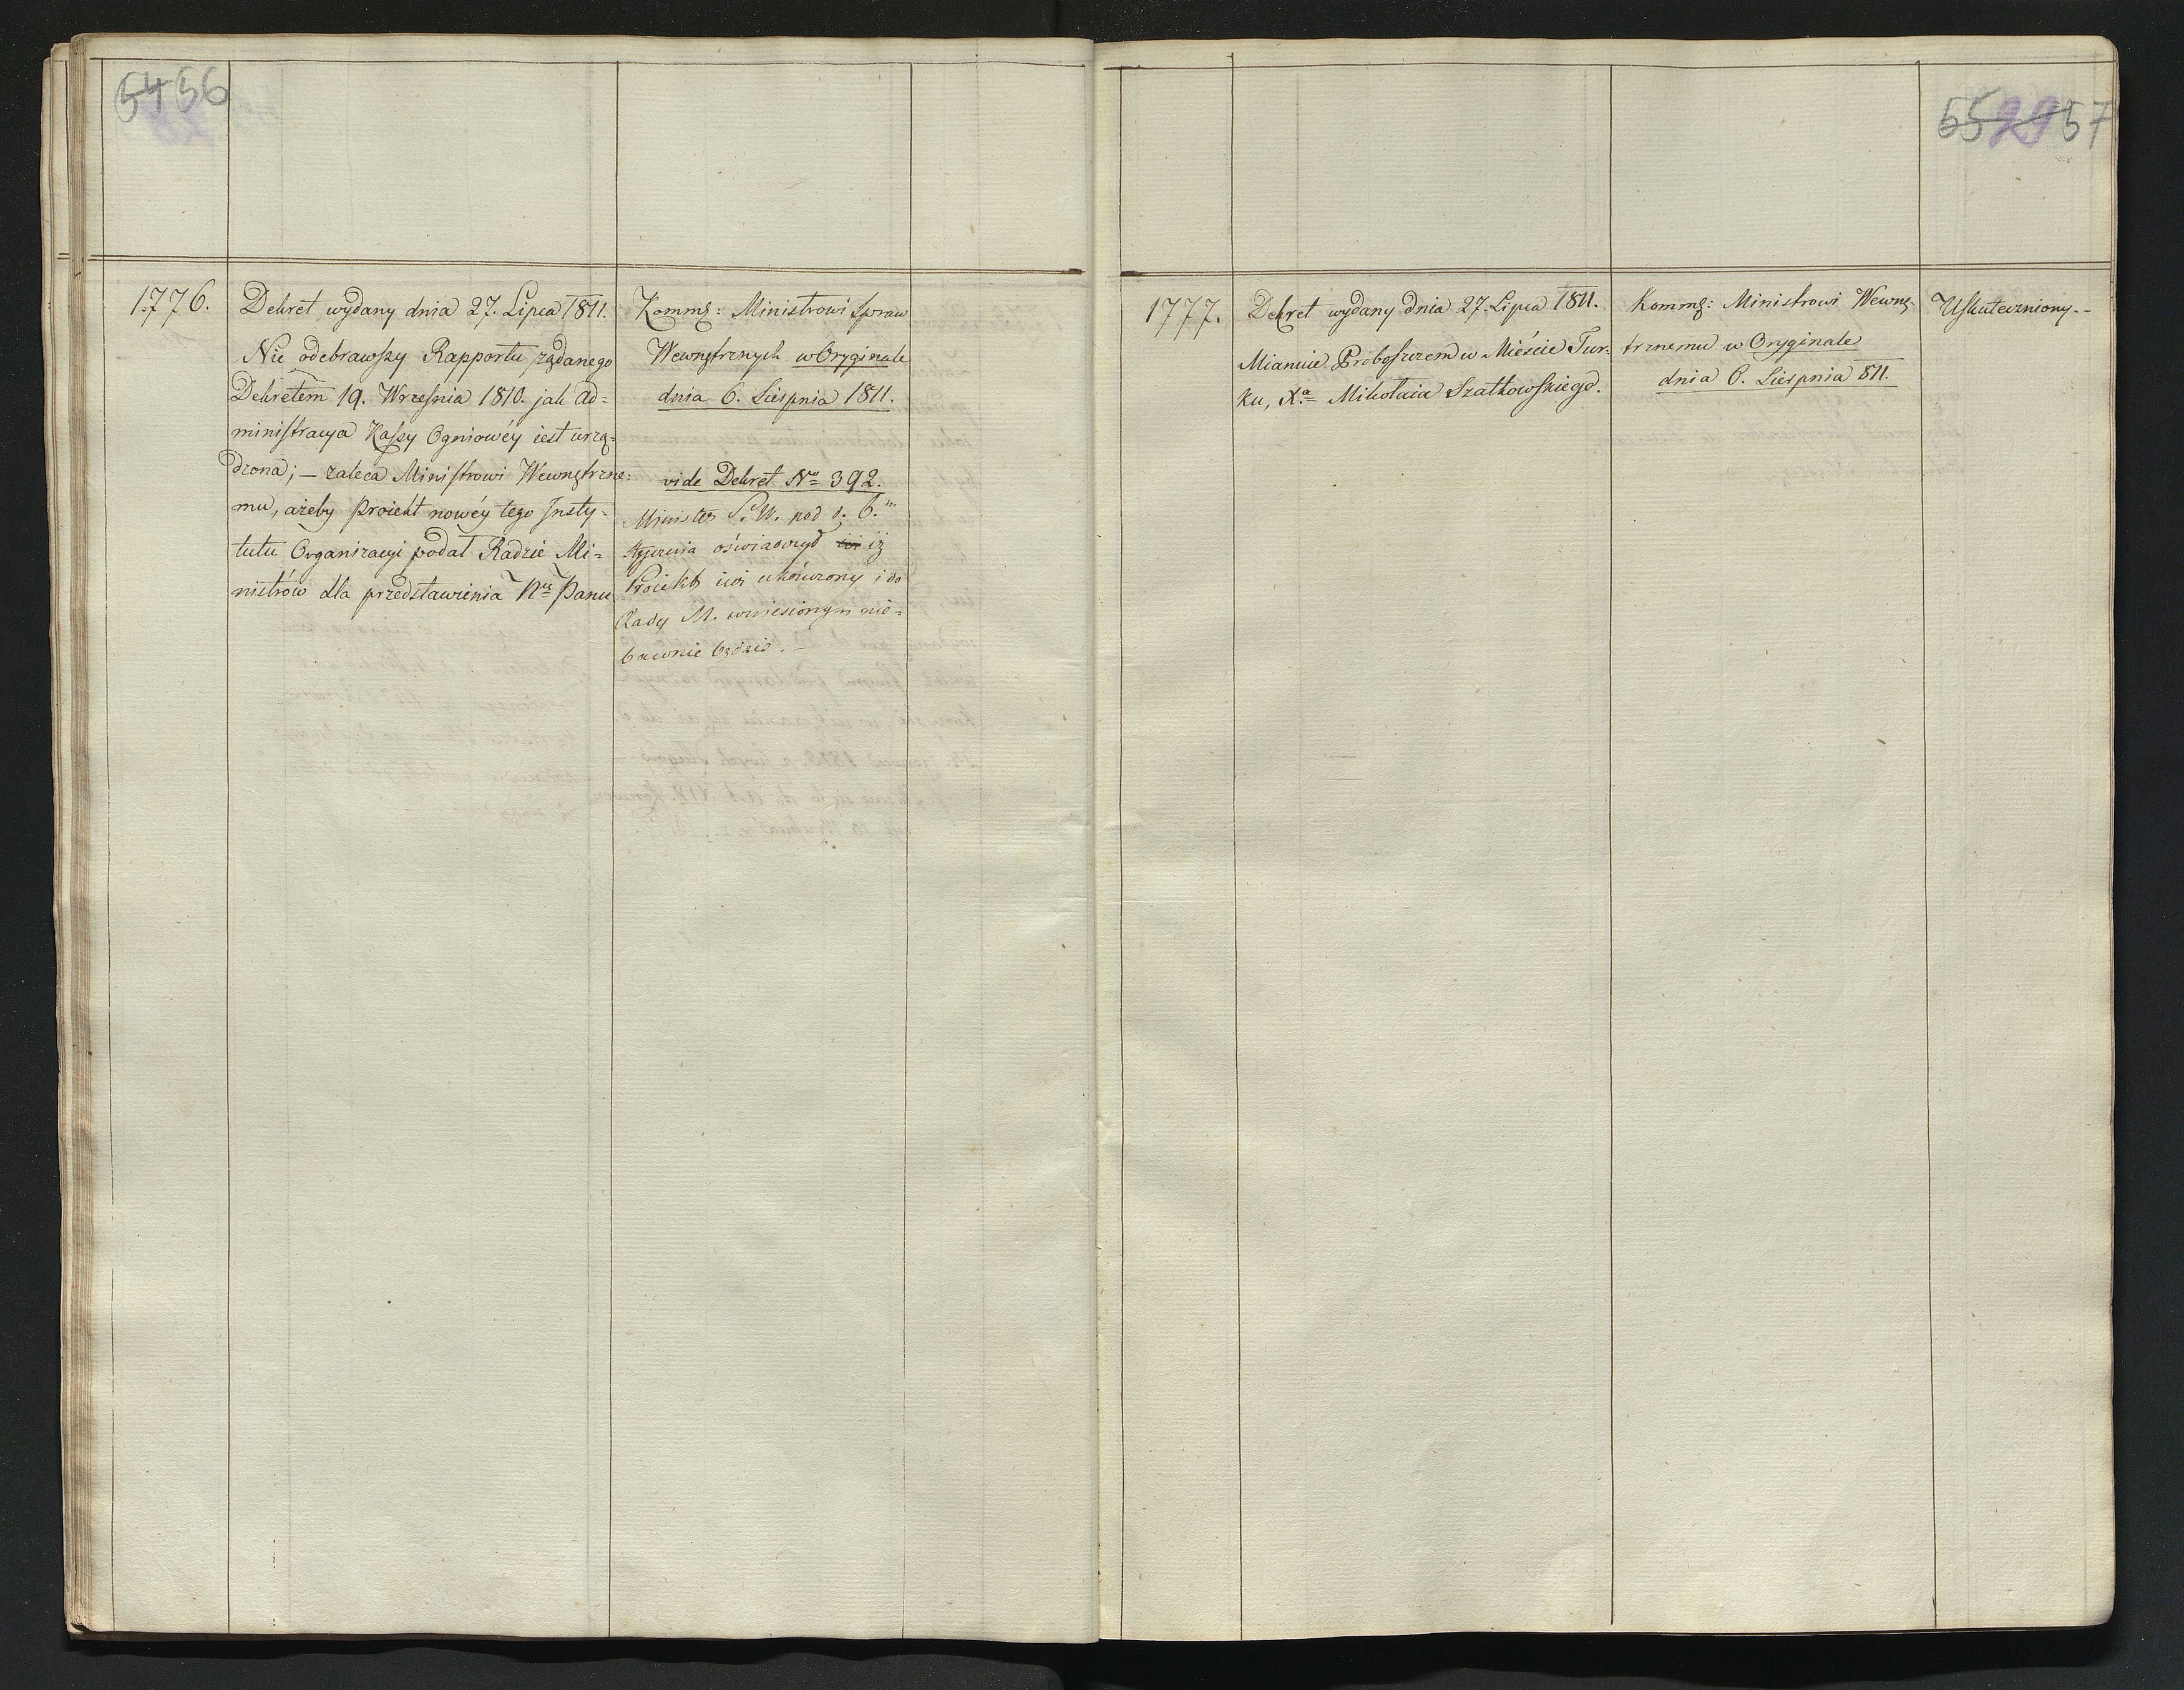 54 56
1776.
Dekret wydany dnia 27. Lipca 1811.
Nie odebrawszy Rapportu żądanego
Dekretem 19. Września 1810. jak Ad=
ministracya Kassy Ogniowéy iest urzą=
dzona; — zaleca Ministrowi Wewnętrzne=
mu, ażeby Proiekt nowéy tego Insty=
tutu Organizacyi podał Radzie Mi=
nistrów dla przedstawienia N. Panu
Kommg: Ministrowi Spraw
Wewnętrznych w Oryginale
dnia 6. Sierpnia 1811.
vide Dekret No 392.
Minister S. W. pod d. 6.
Stycznia oświadczył iż
Proiekt iuż ukończony i do
Rady M. wniesionym nie=
bawnie będzie. —
55 29 57
1777.
Dekret wydany dnia 27. Lipca 1811.
Mianuie Proboszczem w Mieście Tur=
ku, Xa Mikołaia Szatkowskiego.
Kommg: Ministrowi Wewnę=
trznemu w Oryginale
dnia 6. Sierpnia 811.
Uskuteczniony.--